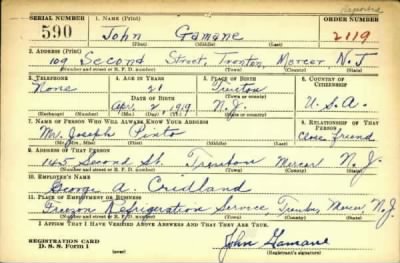 Reported
SERIAL NUMBER 1. NAME (Print) ORDER NUMBER
590 John Gamane 2119
(First) (Middle) (Last)
2. ADDRESS (Print)
109 Second Street, Trenton, Mercer, N.J
(Number and street or R. F. D. number) (Town) (County) (State)
3. TELEPHONE 4. AGE IN YEARS 5. PLACE OF BIRTH 6. COUNTRY OF CITIZENSHIP
None 21 Trenton
DATE OF BIRTH (Town or county)
Apr 2, 1919 N.J. U.S.A.
(Exchange) (Number) (Mo.) (Day) (Yr.) (State or country)
7. NAME OF PERSON WHO WILL ALWAYS KNOW YOUR ADDRESS 8. RELATIONSHIP OF THAT PERSON
Mr. Joseph Pinto Close friend
(Mr., Mrs., Miss) (First) (Middle) (Last)
9. ADDRESS OF THAT PERSON
145 Second St. Trenton Mercer N.J.
(Number and street or R. F. D. number) (Town) (County) (State)
10. EMPLOYER'S NAME
George A. Cridland
11. PLACE OF EMPLOYMENT OR BUSINESS
Refrigeration Service Trenton, Mercer N.J.
(Number and street or R. F. D. number) (Town) (County) (State)
I AFFIRM THAT I HAVE VERIFIED ABOVE ANSWERS AND THAT THEY ARE TRUE.
REGISTRATION CARD John Gamane
D. S. S. Form 1 (over) (Registrant's signature)